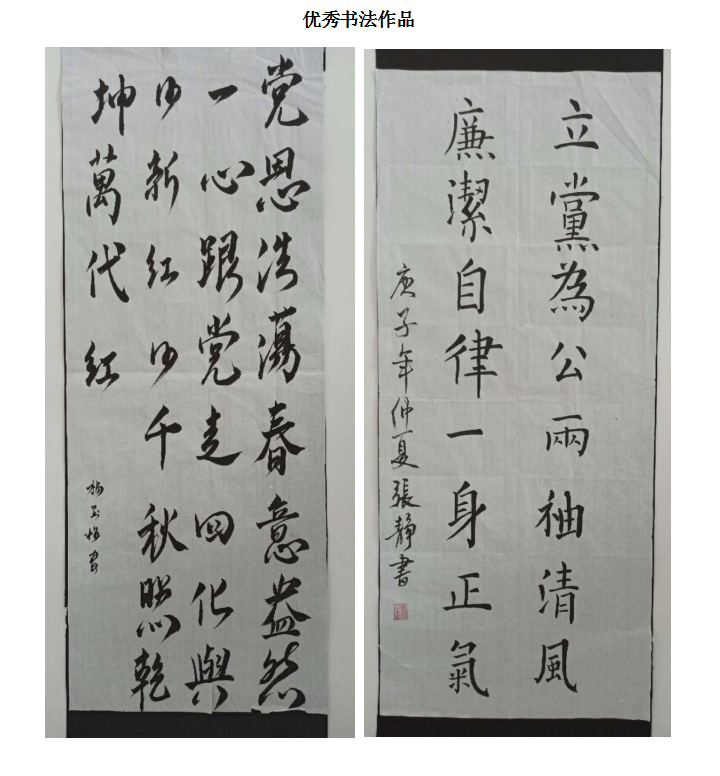 优秀书法作品
党恩浩蕩春意盎然
一心跟党走四化與
日新红日千秋照乾
坤萬代红
書
立黨為公兩袖清風
廉潔自律一身正氣
庚子年仲夏張靜書